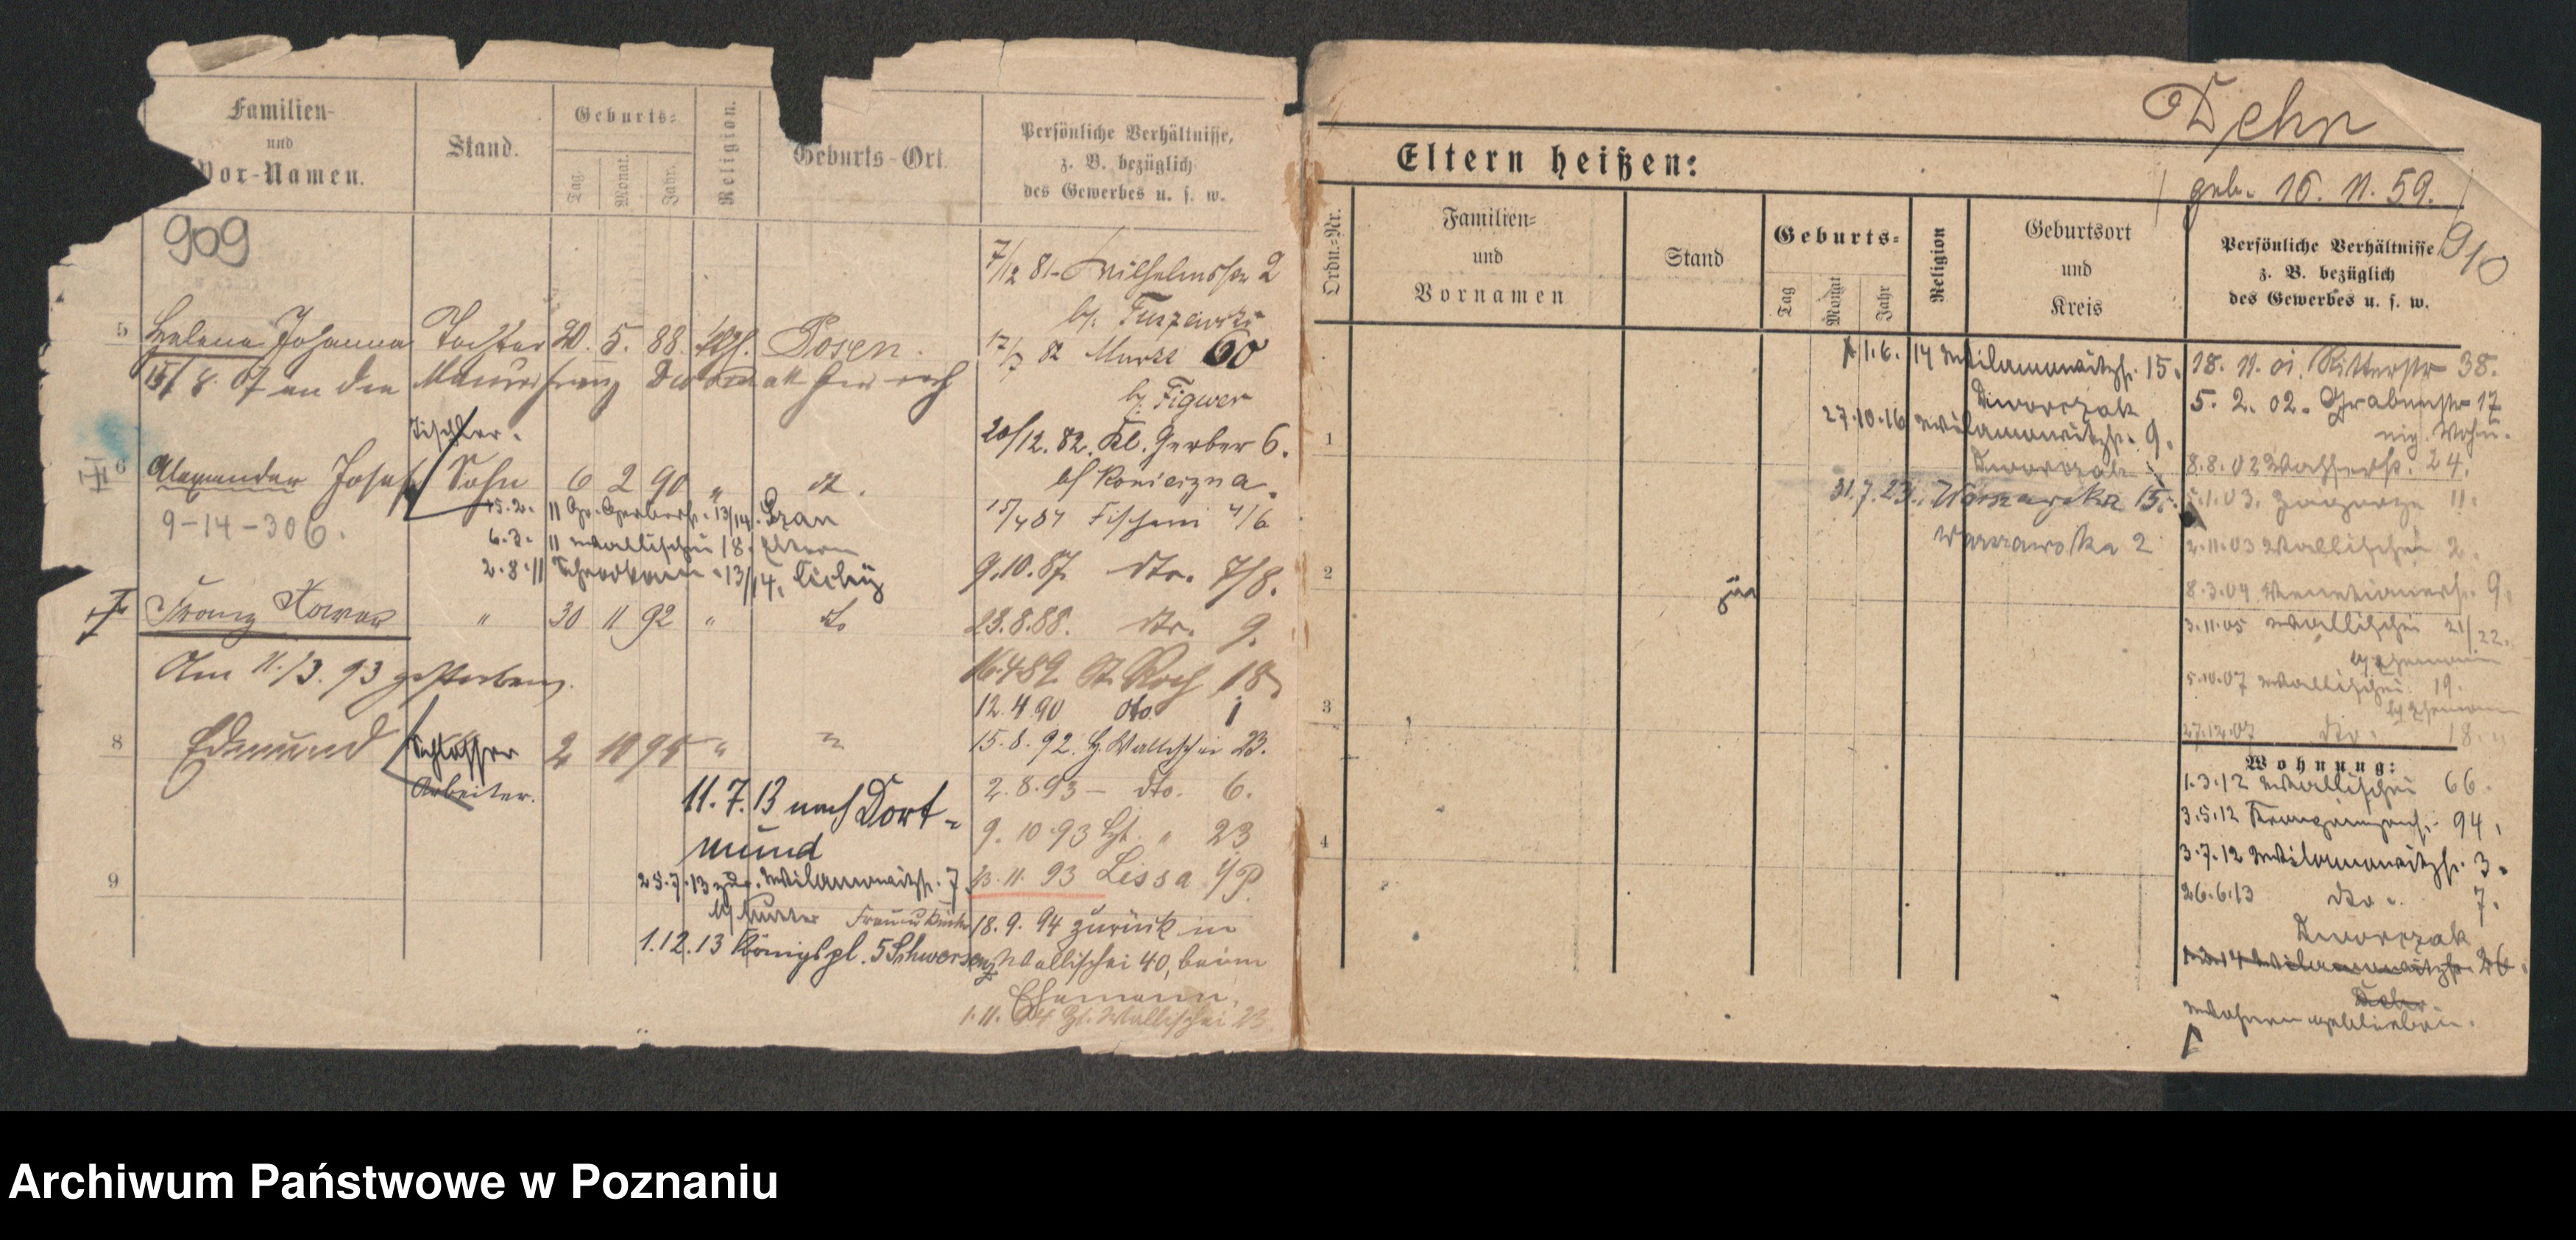 Familien-
und
Vor-Namen.
Stand.
Geburts-
Tag.
Monat.
Jahr.
Religion.
Geburts-Ort.
Persönliche Verhältnisse,
z. B. bezüglich
des Gewerbes u. s. w.
909
5 Helena Johanna Tochter 20. 5. 88. kath. Posen.
15/8. 07 an den Maurer Franz
Tischler.
6 Alexander Josef Sohn 6 2 90 "
9-14-306.
15.2. 11 Gr. Gerberstr. 13/14.
6.3. 11 Wallischei 18. Eltern
2.8.11 13/14.
Franz Xaver " 30 11 92 " do
Am 11./3. 93 gestorben.
8 Edmund Schlosser 2 10 95 " "
Arbeiter.
11.7.13 nach Dort-
mund
9
25.7.13 zur. Wilamowitzstr. 7
b/ Mutter
1.12.13 Königspl. 5 Schwersenz
7/12 81 - Wilhelmsstr 2
b/.
82 60
b/. Figwer
20/12. 82. Kl. Gerber 6.
b/ Konieczna.
15/4 84 Fischerei 4/6
9.10.87. dto. 7/8.
23.8.88. dto. 9.
16.4.89. St. Roch 18
12.4.90 dto 1
15.8.92. Wallischei 23.
2.8.93 - dto. 6.
9. 10 93 " 23
13. 11. 93 Lissa i/P.
18. 9. 94 zurück in
Wallischei 40, beim
Ehemann.
1.11. 94 Wallischei 23
Dehn
geb. 16. 11. 59.
910
Eltern heißen:
Ordn.-Nr.
Familien-
und
Vornamen
Stand
Geburts-
Tag
Monat
Jahr
Religion
Geburtsort
und
Kreis
Persönliche Verhältnisse
z. B. bezüglich
des Gewerbes u. s. w.
1.6. 14 Wilamowitzstr. 15.
Dworczak
27.10.16 Wilamowitzstr. 9.
Dworczak
31.7.23. Warszawska 15.
Warszawska 2
1
2
3
4
18. 11. 01. Ritterstr 38.
5. 2. 02. Grabenstr 17
eig. Wohn.
8.8.02 Wasserstr. 24.
1.03. 11.
2.11.03 Wallischei 2.
8.3.04 Venetianerstr. 9.
3.11.05 Wallischei 21/22.
b/ Ehemann
5.10.07 Wallischei 19.
b/ Ehemann
27.12.07 dto. 18.
Wohnung:
1.3.12 Wallischei 66.
3.5.12 94.
3.7.12 Wilamowitzstr. 3.
26.6.13 dto. 7.
Dworczak
Wilamowitzstr. 26.
Dehn.
wohnen geblieben.
Archiwum Państwowe w Poznaniu